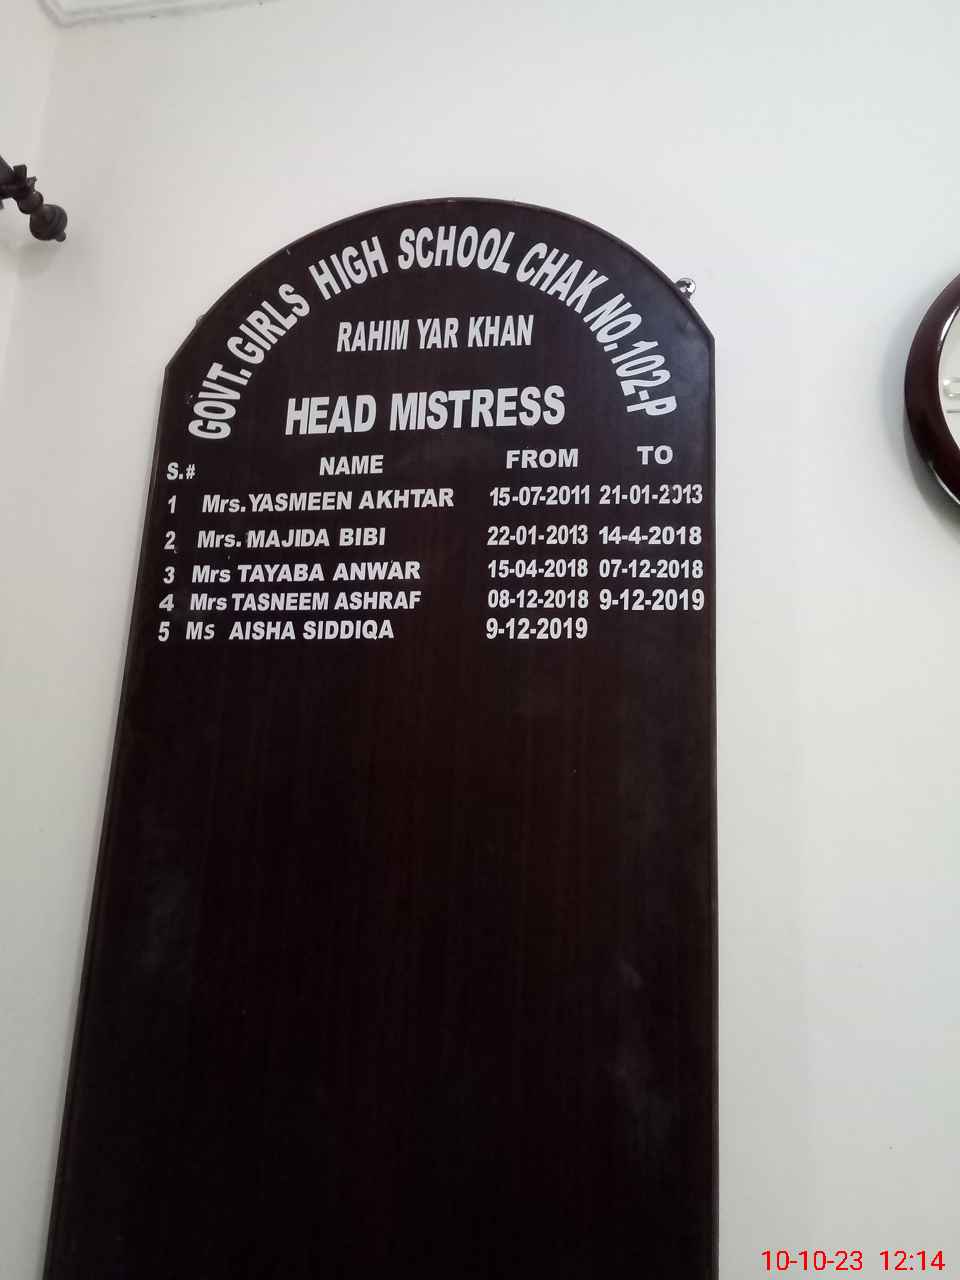 GOVT. GIRLS HIGH SCHOOL CHAK NO.102-P
RAHIM YAR KHAN
HEAD MISTRESS
S.# NAME FROM TO
1 Mrs.YASMEEN AKHTAR 15-07-2011 21-01-2013
2 Mrs. MAJIDA BIBI 22-01-2013 14-4-2018
3 Mrs TAYABA ANWAR 15-04-2018 07-12-2018
4 Mrs TASNEEM ASHRAF 08-12-2018 9-12-2019
5 Ms AISHA SIDDIQA 9-12-2019
10-10-23 12:14